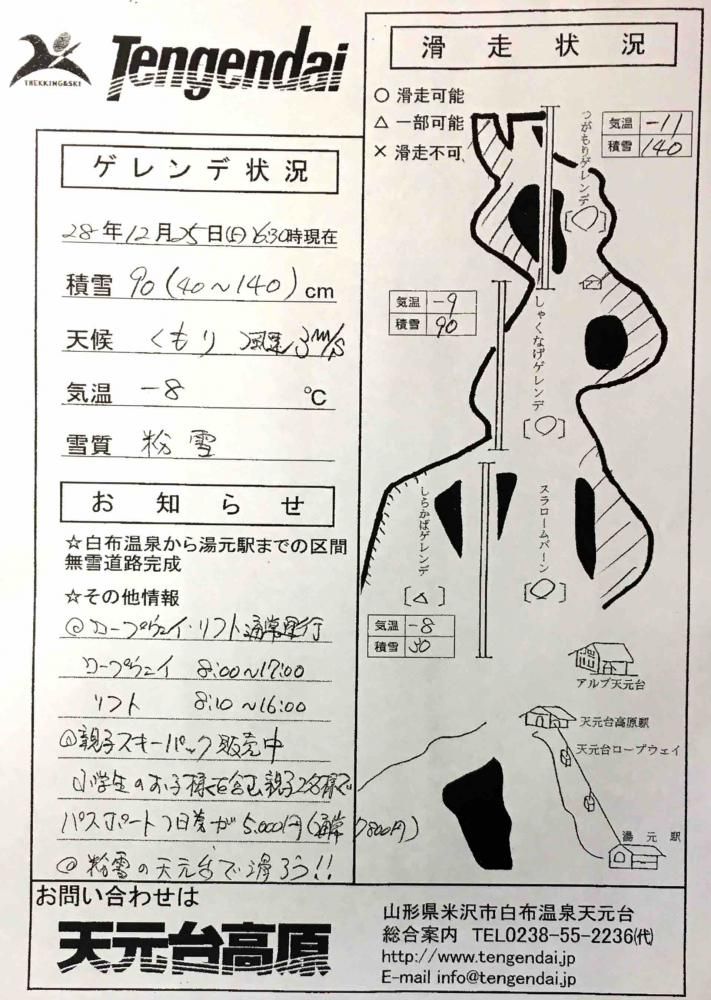 TREKKING&SKI
Tengendai
ゲレンデ状況
28年12月25日(日)6:30時現在
積雪 90(40～140)cm
天候 くもり 風速3m/s
気温 -8 ℃
雪質 粉雪
お知らせ
☆白布温泉から湯元駅までの区間
無雪道路完成
☆その他情報
◎ロープウェイ・リフト通常運行
ロープウェイ 8:00～17:00
リフト 8:10～16:00
◎親子スキーパック販売中
小学生のお子様を含む親子2名様で
パスポート1日券が5,000円(通常7,800円)
◎粉雪の天元台で滑ろう!!
滑走状況
○ 滑走可能
△ 一部可能
× 滑走不可
つがもりゲレンデ
[○]
気温 -11
積雪 140
気温 -9
積雪 90
しゃくなげゲレンデ
[○]
しらかばゲレンデ
[△]
スラロームバーン
[○]
気温 -8
積雪 30
アルブ天元台
天元台高原駅
天元台ロープウェイ
湯元駅
お問い合わせは
天元台高原
山形県米沢市白布温泉天元台
総合案内 TEL0238-55-2236(代)
http://www.tengendai.jp
E-mail info@tengendai.jp